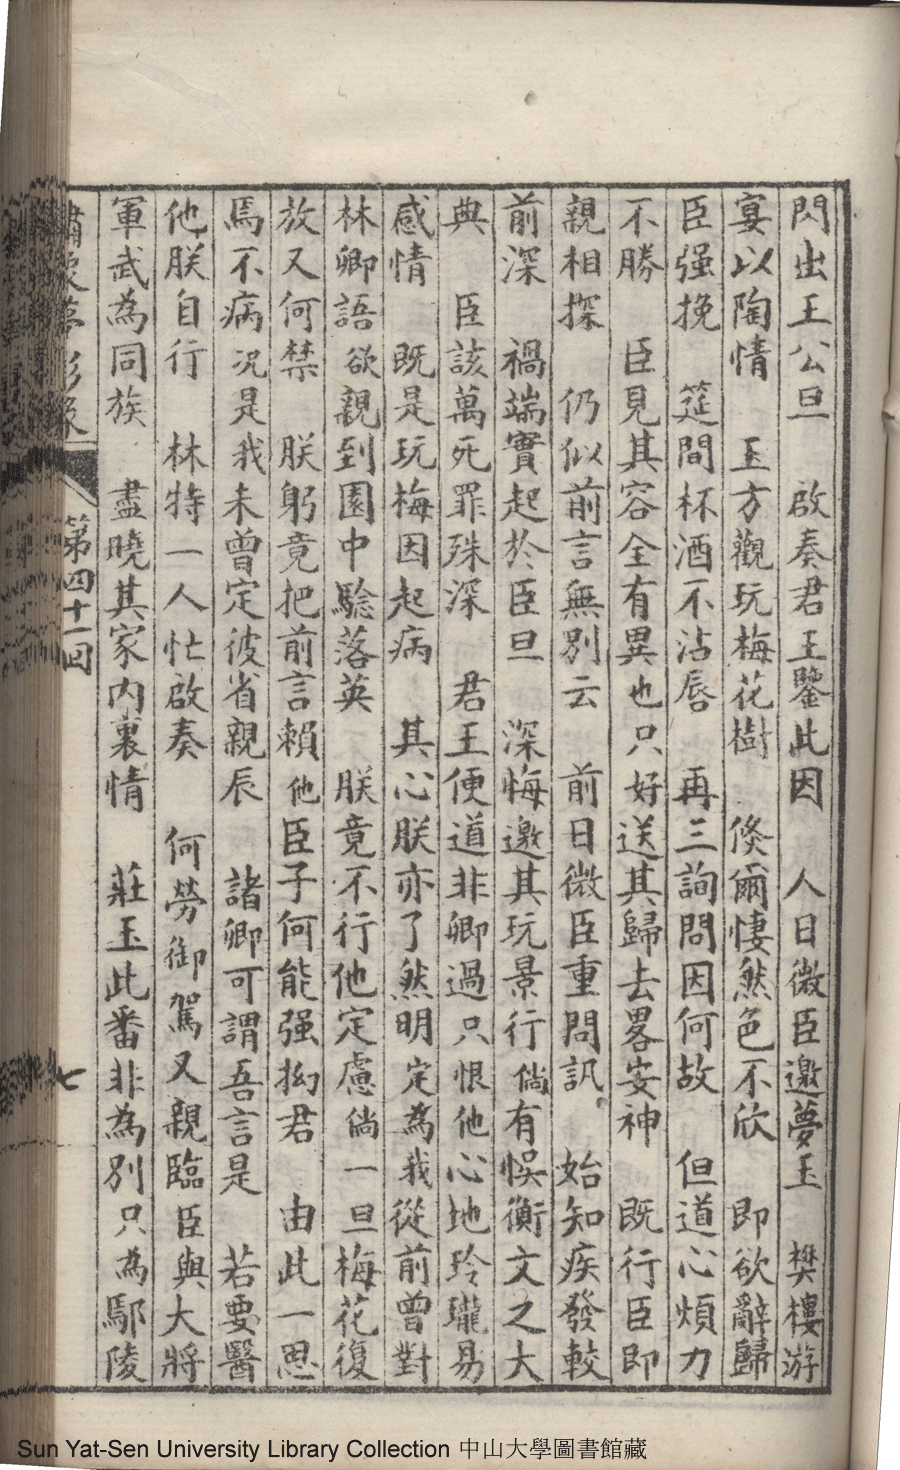 閃出王公旦　啟奏君王鑒此因　人日微臣邀夢玉　樊樓游
宴以陶情　玉方觀玩梅花樹　倏爾悽然色不欣　即欲辭歸
臣强挽　筵間杯酒不沾唇　再三詢問因何故　但道心煩力
不勝　臣見其容全有異也只好送其歸去畧安神　既行臣即
親相探　仍似前言無別云　前日微臣重問訊　始知疾發較
前深　禍端實起於臣旦　深悔邀其玩景行倘有悞衡文之大
典　臣該萬死罪殊深　君王便道非卿過只恨他心地玲瓏易
感情　既是玩梅因起病　其心朕亦了然明定為我從前曾對
林卿語欲親到園中驗落英　朕竟不行他定慮倘一旦梅花復
放又何禁　朕躬竟把前言賴他臣子何能强拗君　由此一思
焉不病况是我未曾定彼省親辰　諸卿可謂吾言是　若要醫
他朕自行　林特一人忙啟奏　何勞御駕又親臨臣與大將
軍武為同族　盡曉其家內裏情　莊玉此番非為別只為鄢陵
第四十一回
七
Sun Yat-Sen University Library Collection 中山大學圖書館藏